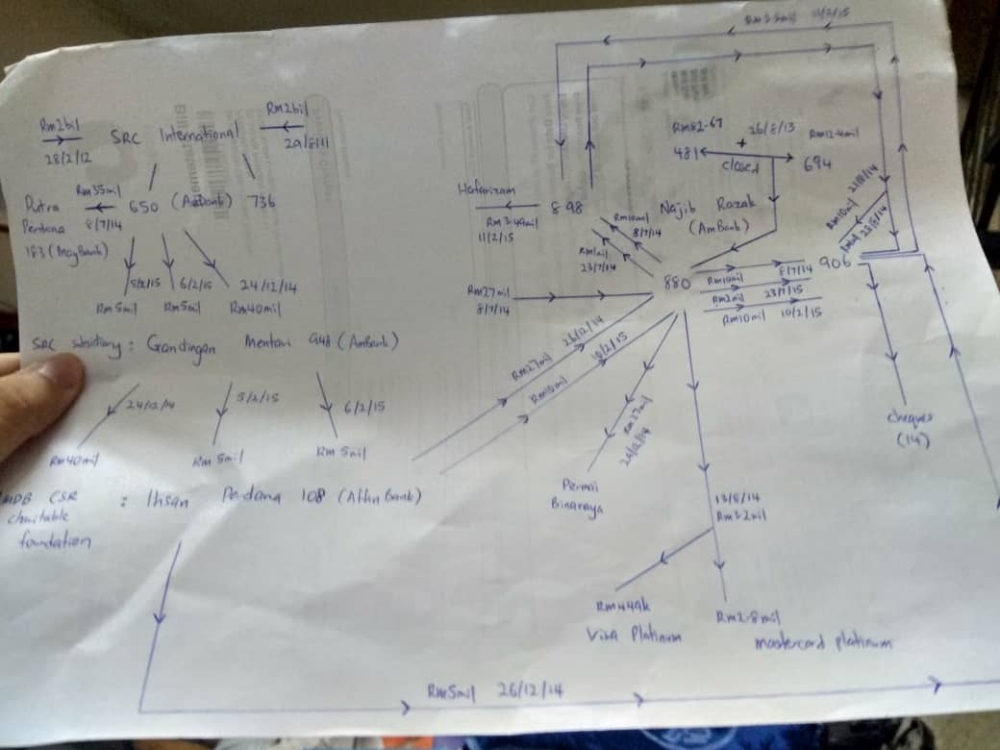 Rm2bil
28/2/12
SRC International
Rm2bil
29/8/11
Rm5.5mil 11/2/15
Rm82.67
26/8/13
Rm12.4mil
+
481
694
closed
Putra
Perdana
183 (MayBank)
Rm35mil
8/7/14
650 (AmBank) 736
Hafarizam
Rm2.49mil
11/2/15
898
Najib Razak
(AmBank)
Rm10mil
8/7/14
Rm1mil
23/7/14
Rm10mil
1mil
906
880
Rm10mil
8/7/14
Rm2mil
23/7/15
Rm10mil
10/2/15
5/2/15
6/2/15
24/12/14
Rm5mil Rm5mil Rm40mil
Rm27mil
8/7/14
SRC subsidiary: Gandingan Mentari 948 (AmBank)
24/12/14
5/2/15
6/2/15
Rm40mil Rm 5mil Rm 5mil
Rm27mil 26/12/14
Rm10mil 10/2/15
Rm27mil
Permai
Binaraya
cheques
(14)
CSR
charitable
foundation
: Ihsan Perdana 108 (Affin Bank)
13/8/14
Rm3.2mil
Rm449k
Visa Platinum
Rm2.8mil
mastercard platinum
Rm5mil 26/12/14